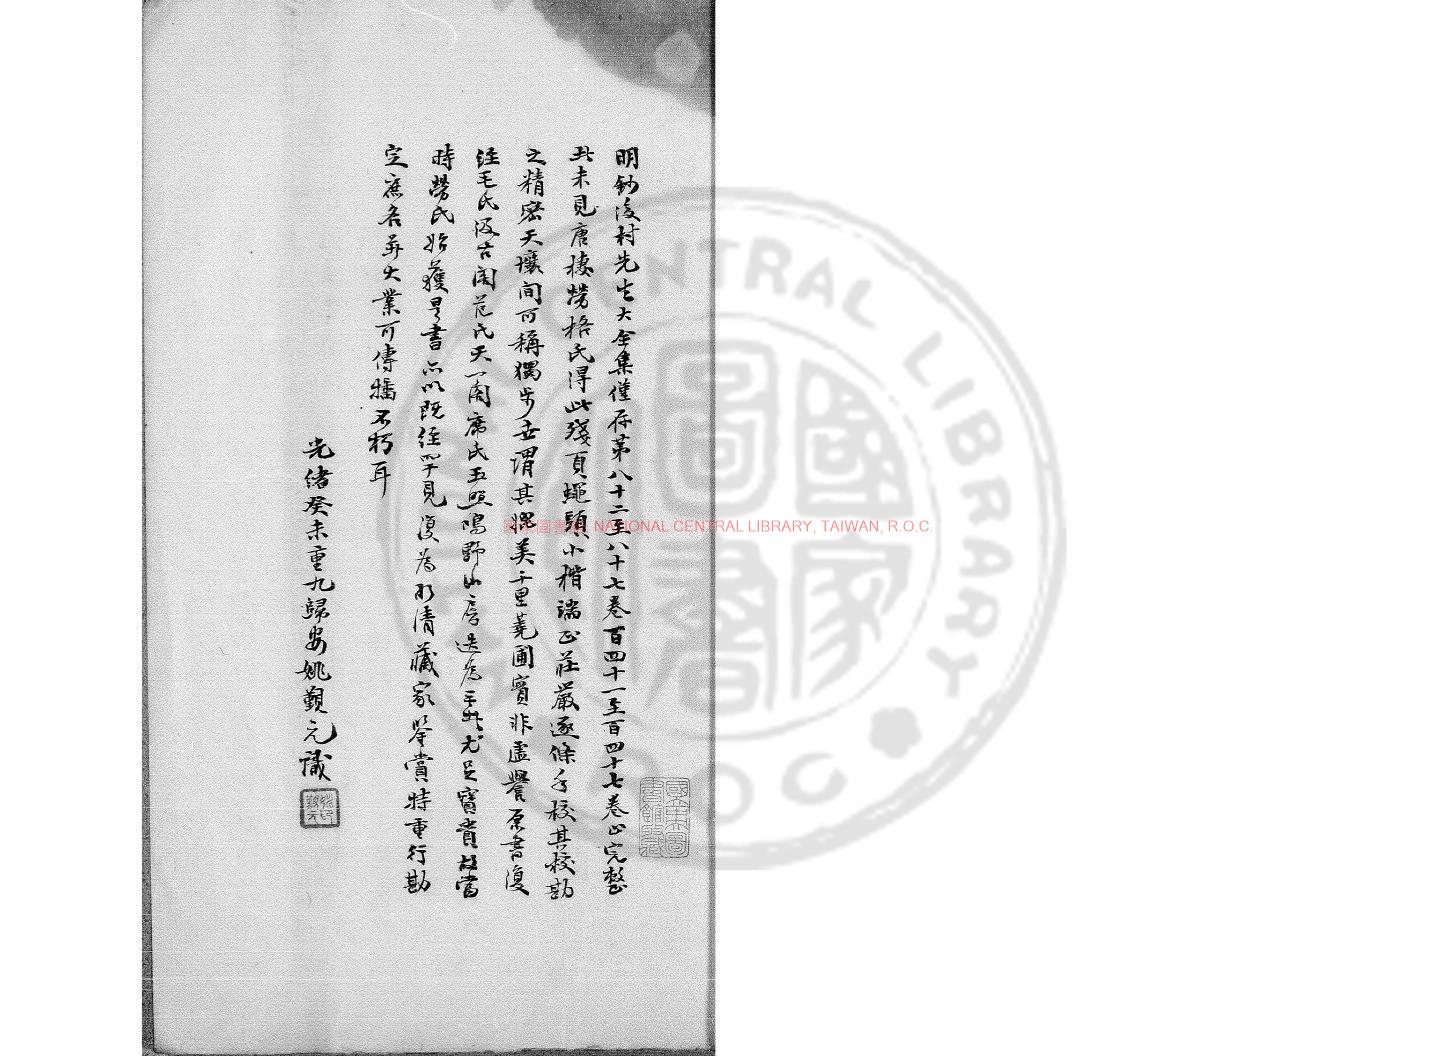 明鈔後村先生大全集僅存第八十二至八十七卷百四十一至百四十七卷止完整
本未見唐棲勞格氏得此殘頁蠅頭小楷端正莊嚴逐條手校其校勘
之精密天壤間可稱獨步世謂其媲美千里蕘圃實非虛譽原書復
經毛氏汲古閣范氏天一閣席氏玉照鳴野山房迭為 尤足寶貴 當
時勞氏始獲是書 以既經 見復為 清藏家 賞特重行勘
定庶名弆大業可傳播不朽耳
光緒癸未重九歸安姚覲元識
國立中央圖書館收藏
NATIONAL CENTRAL LIBRARY, TAIWAN, R.O.C.
NATIONAL CENTRAL LIBRARY
ROC
國家圖書